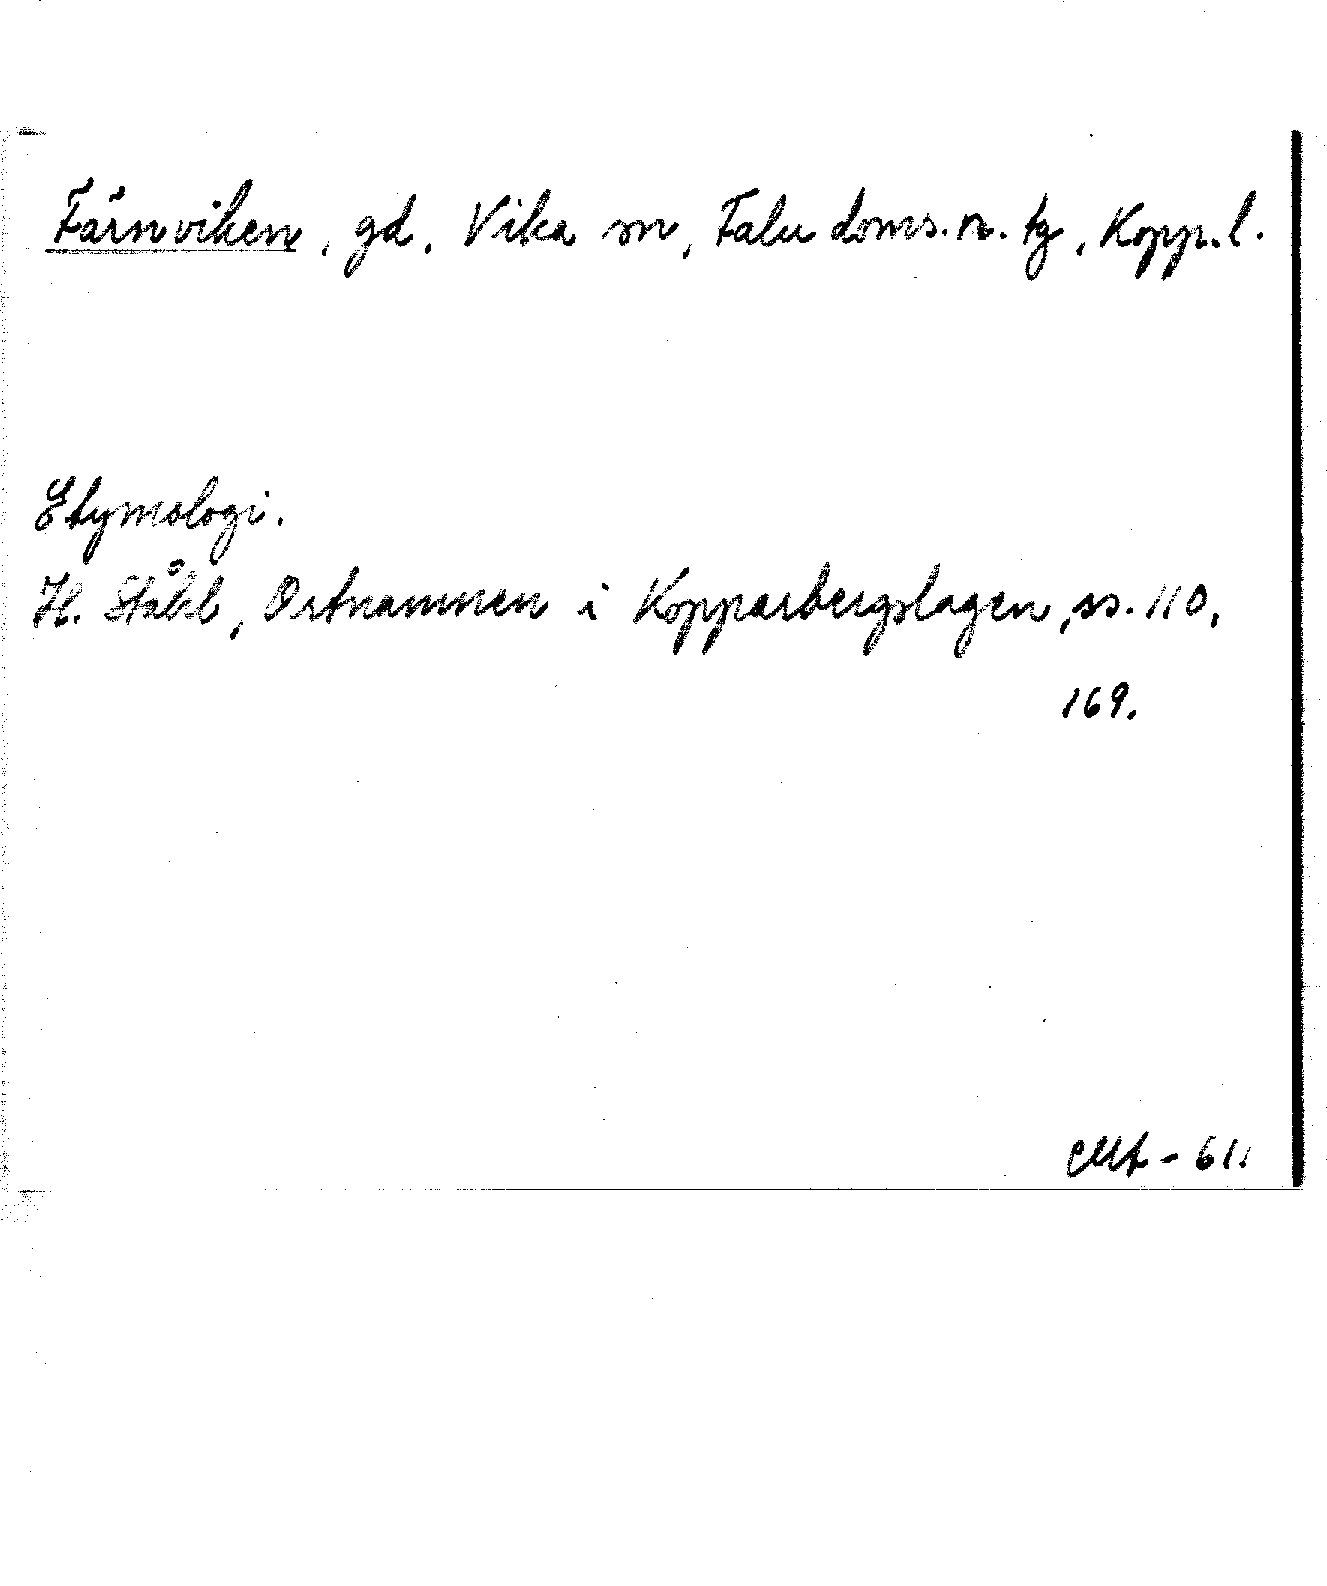 Färnviken, gd, Vika sn, Falu doms. n. tg, Kopp. l.
Etymologi.
H. Ståhl, Ortnamnen i Kopparbergslagen, ss. 110,
169.
- 61.